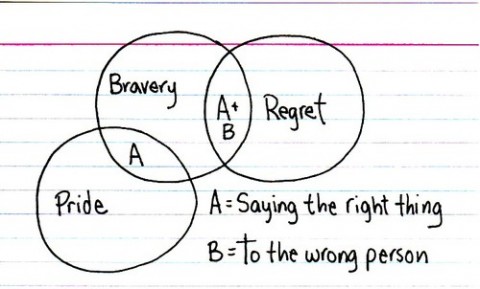 Bravery
A+
B
Regret
A
Pride
A = Saying the right thing
B = to the wrong person